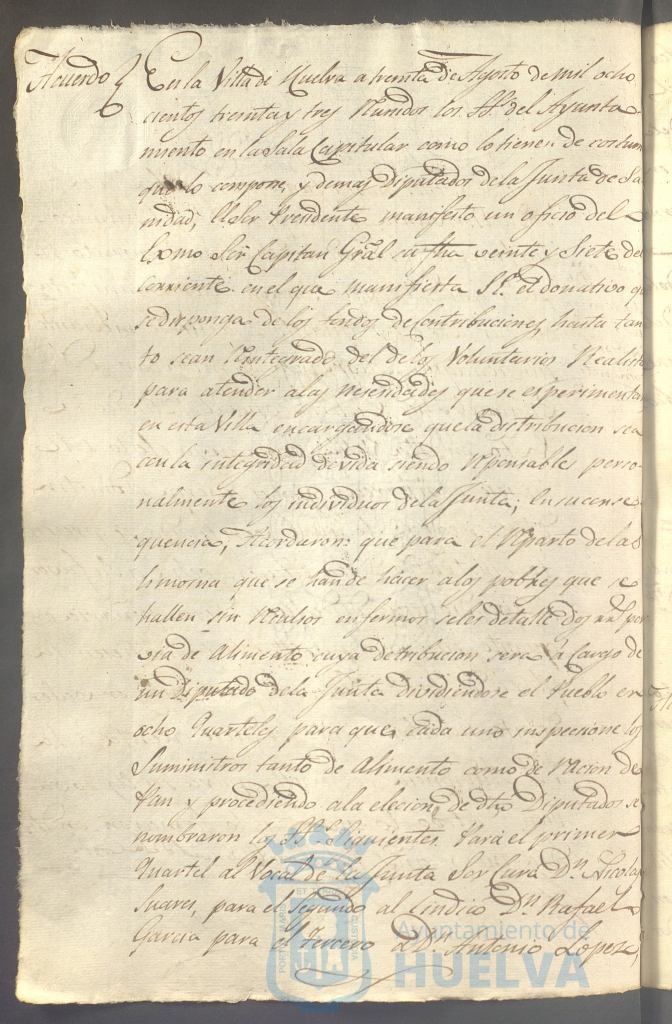 Acuerdo En la Villa de Huelva a treinta de Agosto de mil ocho
cientos treinta y tres Reunidos los SS.s del Ayunta
miento en la Sala Capitular como lo tienen de costum
que lo compone, y demas Diputados de la Junta de Sa
nidad; el Sor Presidente manifesto un oficio del
Exmo Sor Capitan Gral su fha veinte y Siete del
Corriente en el que manifiesta S.E. el donativo q
se disponga de los fondos de Contribuciones, hasta tan
to sean Reintegrado del de los Voluntarios Realist
para atender a las nesesidades que se esperimenta
en esta Villa encargandose que la distribucion sea
con la integridad devida siendo responsables perso
nalmente los individuos de la Junta; En su conse
quencia, Acordaron: que para el Reparto de las
limosna que se han de hacer a los pobres que se
hallen sin Recursos enfermos se les detalle dos rr.s por
via de Alimento cuya detribucion sera a Cargo de
un Diputado de la Junta dividiendose el Pueblo en
ocho Quarteles para que cada uno inspecione los
Suministros tanto de Alimento como de Racion de
Pan y procediendo a la elecion de dho Diputados se
nombraron los SS.s Siguientes. Para el primer
Quartel al Vocal de la Junta Sor Cura D.n Nicolas
Suares, para el Segundo al Sindico D.n Rafael
Garcia para el tercero a D.n Antonio Lopez,
Ayuntamiento de
HUELVA